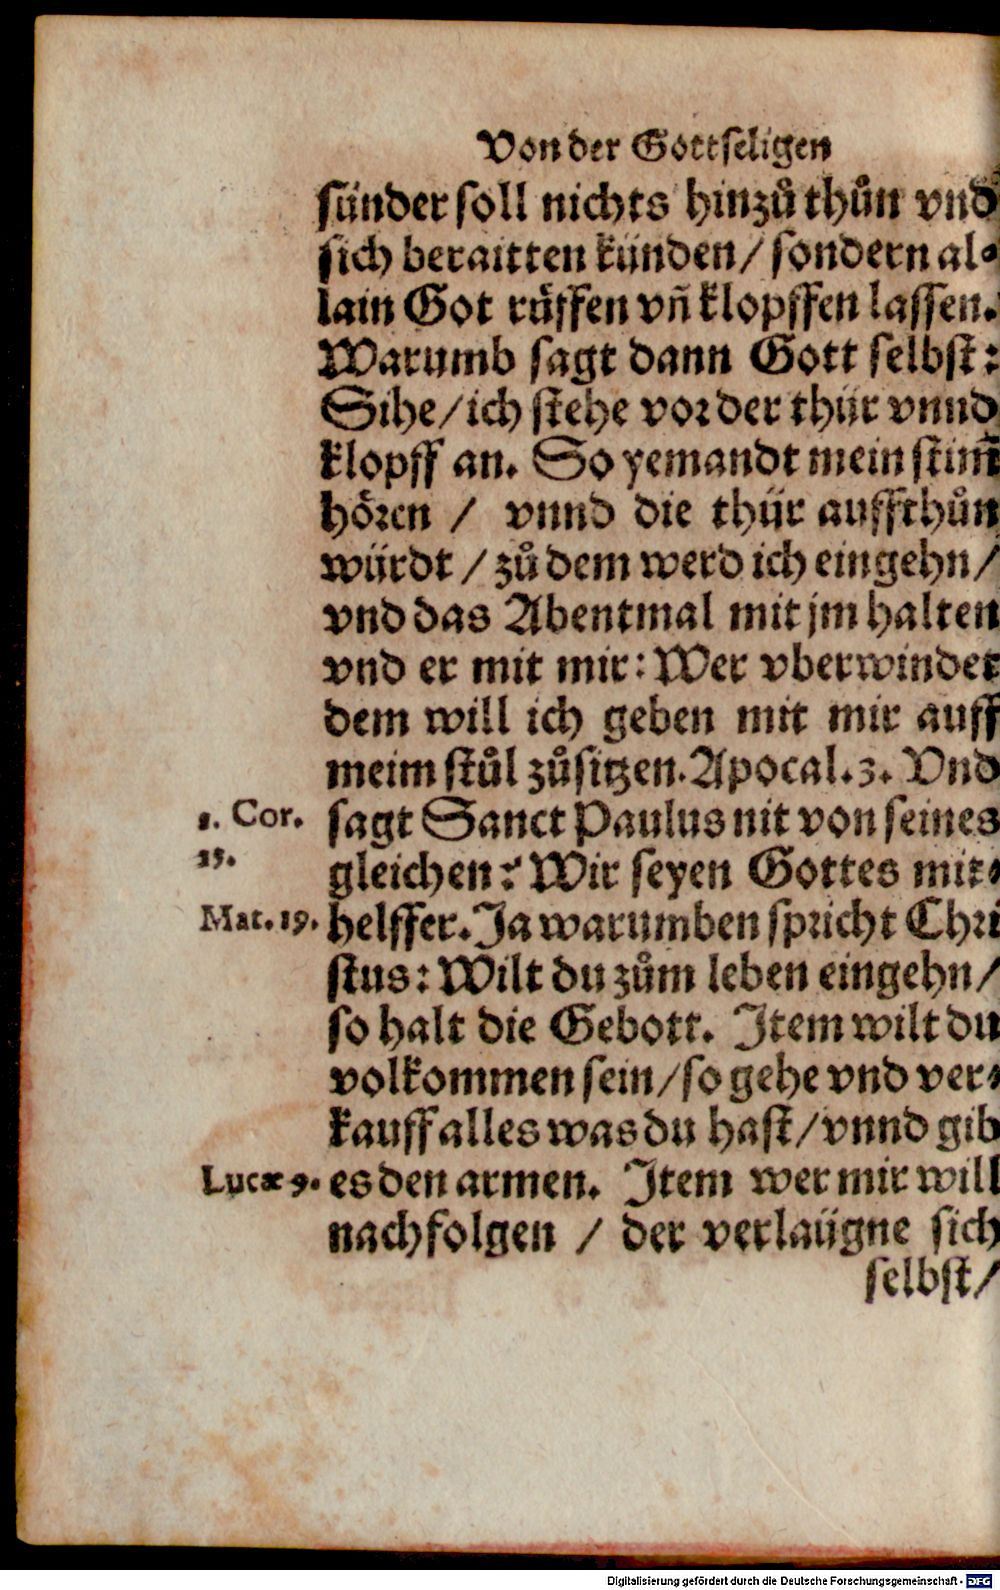 Von der Gottseligen
sünder soll nichts hinzů thůn vnd
sich beraitten künden/ sondern al-
lain Got rüffen vñ klopffen lassen.
Warumb sagt dann Gott selbst:
Sihe/ ich stehe vor der thür vnnd
klopff an. So yemandt mein stim̃
hören / vnnd die thür auffthůn
würdt / zů dem werd ich eingehn/
vnd das Abentmal mit jm halten
vnd er mit mir: Wer vberwindet
dem will ich geben mit mir auff
meim stůl zůsitzen. Apocal. 3. Vnd
1. Cor. sagt Sanct Paulus nit von seines
15. gleichen: Wir seyen Gottes mit-
Mat. 19. helffer. Ja warumben spricht Chri
stus: Wilt du zům leben eingehn/
so halt die Gebott. Item wilt du
volkommen sein/ so gehe vnd ver-
kauff alles was du hast/ vnnd gib
Lucæ 9. es den armen. Item wer mir will
nachfolgen / der verlaügne sich
selbst/
Digitalisierung gefördert durch die Deutsche Forschungsgemeinschaft - DFG